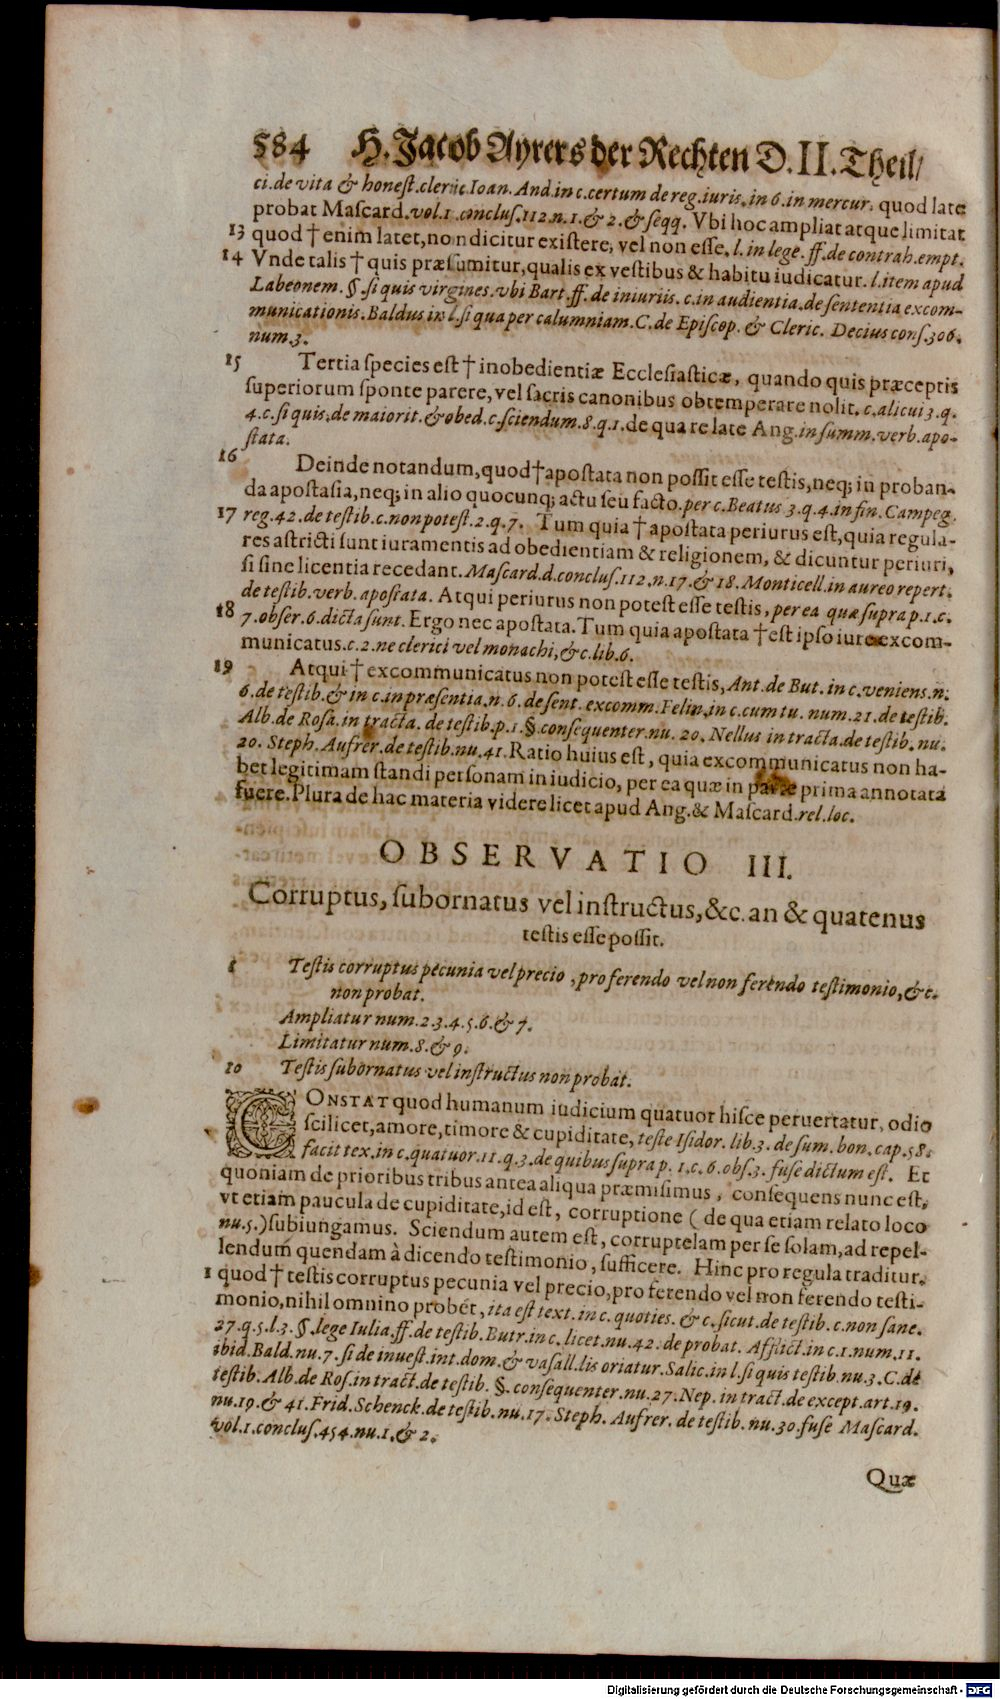 584 H. Jacob Ayrers der Rechten D. II. Theil/
ci. de vita & honeſt. cleric. Ioan. And. in c. certum de reg. iuris. in 6. in mercur. quod late
probat Maſcard. vol. 1. concluſ. 112. n. 1. & 2. & ſeqq. Vbi hoc ampliat atque limitat
13 quod † enim latet, non dicitur exiſtere, vel non eſſe. l. in lege. ff. de contrah. empt.
14 Vnde talis † quis præſumitur, qualis ex veſtibus & habitu iudicatur. l. item apud
Labeonem. §. ſi quis virgines. vbi Bart. ff. de iniuriis. c. in audientia. de ſententia excom-
municationis. Baldus in l. ſi qua per calumniam. C. de Epiſcop. & Cleric. Decius conſ. 306.
num. 3.
15 Tertia ſpecies eſt † inobedientiæ Eccleſiaſticæ, quando quis præceptis
ſuperiorum ſponte parere, vel ſacris canonibus obtemperare nolit. c. alicui 3. q.
4. c. ſi quis. de maiorit. & obed. c. ſciendum. 8. q. 1. de qua re late Ang. in ſumm. verb. apo-
ſtata.
16 Deinde notandum, quod † apoſtata non poſſit eſſe teſtis, neq; in proban-
da apoſtaſia, neq; in alio quocunq; actu ſeu facto. per c. Beatus 3. q. 4. in fin. Campeg.
17 reg. 42. de teſtib. c. non poteſt. 2. q. 7. Tum quia † apoſtata periurus eſt, quia regula-
res aſtricti ſunt iuramentis ad obedientiam & religionem, & dicuntur periuri,
ſi ſine licentia recedant. Maſcard. d. concluſ. 112. n. 17. & 18. Monticell. in aureo repert.
de teſtib. verb. apoſtata. Atqui periurus non poteſt eſſe teſtis, per ea quæ ſupra p. 1. c.
18 7. obſer. 6. dicta ſunt. Ergo nec apoſtata. Tum quia apoſtata † eſt ipſo iure excom-
municatus. c. 2. ne clerici vel monachi, & c. lib. 6.
19 Atqui † excommunicatus non poteſt eſſe teſtis, Ant. de But. in c. veniens. n.
6. de teſtib. & in c. in præſentia. n. 6. de ſent. excomm. Felin. in c. cum tu. num. 21. de teſtib.
Alb. de Roſa. in tracta. de teſtib. p. 1. §. conſequenter. nu. 20. Nellus in tracta. de teſtib. nu.
20. Steph. Aufrer. de teſtib. nu. 41. Ratio huius eſt, quia excommunicatus non ha-
bet legitimam ſtandi perſonam in iudicio, per ea quæ in parte prima annotata
fuere. Plura de hac materia videre licet apud Ang. & Maſcard. rel. loc.
OBSERVATIO III.
Corruptus, ſubornatus vel inſtructus, &c. an & quatenus
teſtis eſſe poſſit.
1 Teſtis corruptus pecunia vel precio, pro ferendo vel non ferendo teſtimonio, &c.
non probat.
Ampliatur num. 2. 3. 4. 5. 6. & 7.
Limitatur num. 8. & 9.
10 Teſtis ſubornatus vel inſtructus non probat.
CONSTAT quod humanum iudicium quatuor hiſce peruertatur, odio
ſcilicet, amore, timore & cupiditate, teſte Iſidor. lib. 3. de ſum. bon. cap. 58.
facit tex. in c. quatuor. 11. q. 3. de quibus ſupra p. 1. c. 6. obſ. 3. fuſe dictum eſt. Et
quoniam de prioribus tribus antea aliqua præmiſimus, conſequens nunc eſt,
vt etiam paucula de cupiditate, id eſt, corruptione (de qua etiam relato loco
nu. 5.) ſubiungamus. Sciendum autem eſt, corruptelam per ſe ſolam, ad repel-
lendum quendam à dicendo teſtimonio, ſufficere. Hinc pro regula traditur,
1 quod † teſtis corruptus pecunia vel precio, pro ferendo vel non ferendo teſti-
monio, nihil omnino probet, ita eſt text. in c. quoties. & c. ſicut. de teſtib. c. non ſane.
27. q. 5. l. 3. §. lege Iulia. ff. de teſtib. Butr. in c. licet. nu. 42. de probat. Afflict. in c. 1. num. 11.
ibid. Bald. nu. 7. ſi de inueſt. int. dom. & vaſall. lis oriatur. Salic. in l. ſi quis teſtib. nu. 3. C. de
teſtib. Alb. de Roſ. in tract. de teſtib. §. conſequenter. nu. 27. Nep. in tract. de except. art. 19.
nu. 19. & 41. Frid. Schenck. de teſtib. nu. 17. Steph. Aufrer. de teſtib. nu. 30. fuſe Maſcard.
vol. 1. concluſ. 454. nu. 1. & 2.
Quæ
Digitalisierung gefördert durch die Deutsche Forschungsgemeinschaft - DFG